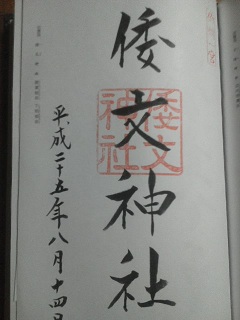 倭文神社
倭文
神社
平成二十五年八月十四日